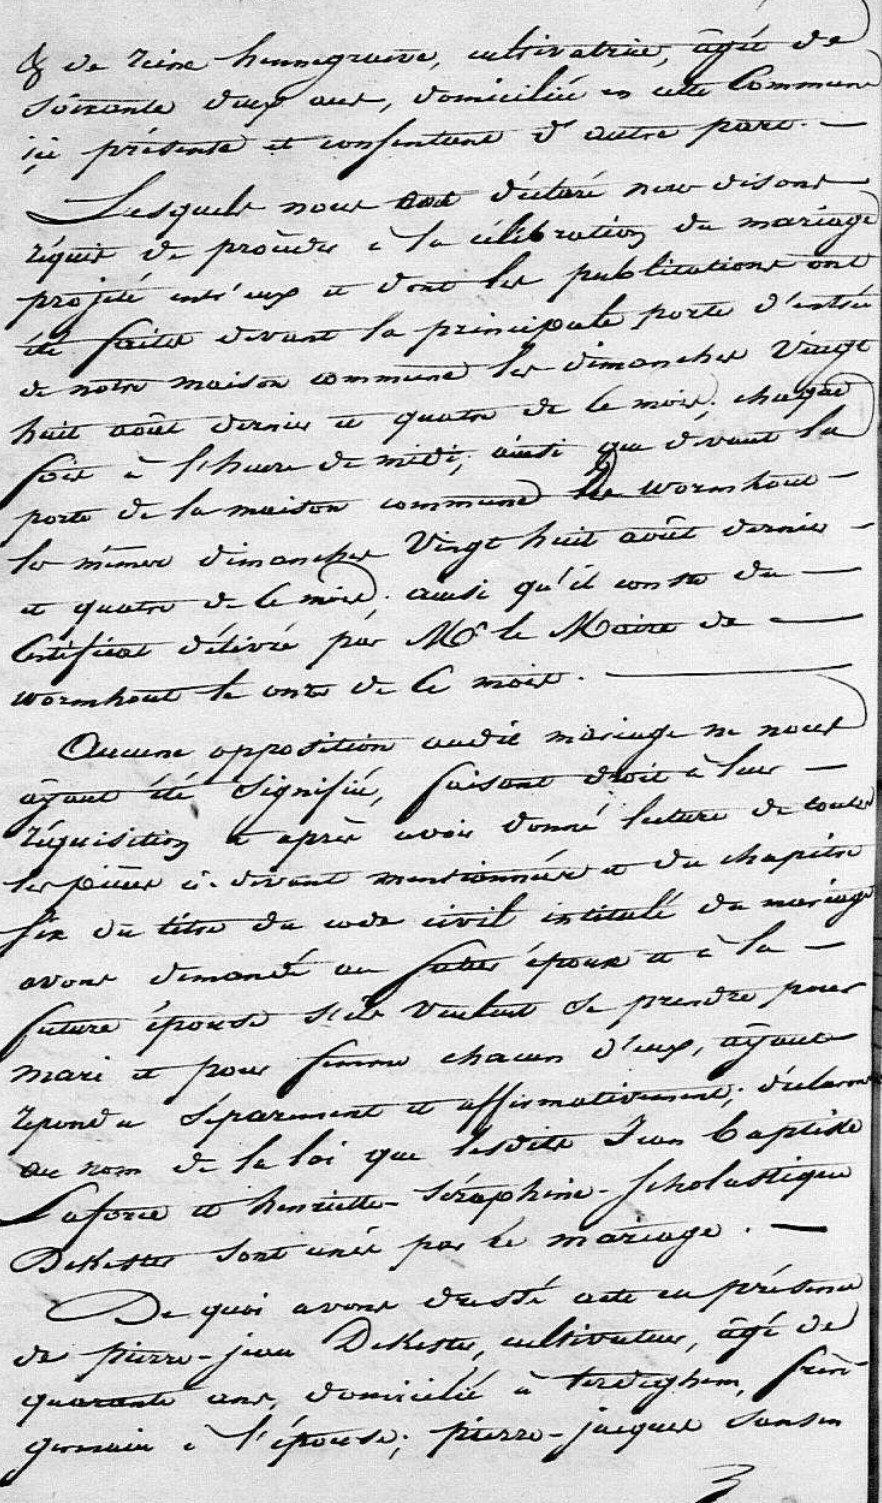 & de reine hennegraeve, cultivatrice, âgée de
soixante deux ans, domiciliée en cette Commune
ici présente et consentant d'autre part. —
Lesquels nous ont déclaré nous disons
réquis de procéder à la célébration du mariage
projeté entr'eux et dont les publications ont
été faites devant la principale porte d'entrée
de notre maison commune les dimanches Vingt
huit août dernier et quatre de Ce mois, chaque
fois à l'heure de midi; ainsi que devant la
porte de la maison commune de wormhout —
les mêmes dimanches Vingt huit août dernier —
et quatre de Ce mois. ainsi qu'il conste du —
Certificat délivré par Mr le Maire de —
wormhout le onze de Ce mois. —
Aucune opposition audit mariage ne nous
ayant été signifiée, faisant droit à leur —
réquisition et après avoir donné lecture de toutes
les pièces ci-devant mentionnées et du chapitre
six du titre du code civil intitulé du mariage
avons demandé au futur époux et à la —
future épouse s'ils veulent se prendre pour
mari et pour femme chacun d'eux, ayant
répondu séparement et affirmativement; déclarons
au nom de la loi que lesdits Jean Baptiste
Laforce et henriette-Séraphine-Scholastique
DeKester sont unis par le mariage. —
De quoi avons dressé acte en présence
de pierre-jean DeKester, cultivateur, âgé de
quarante ans, domicilié à terdeghem, frère
germain à l'épouse; pierre-jacques Sansen